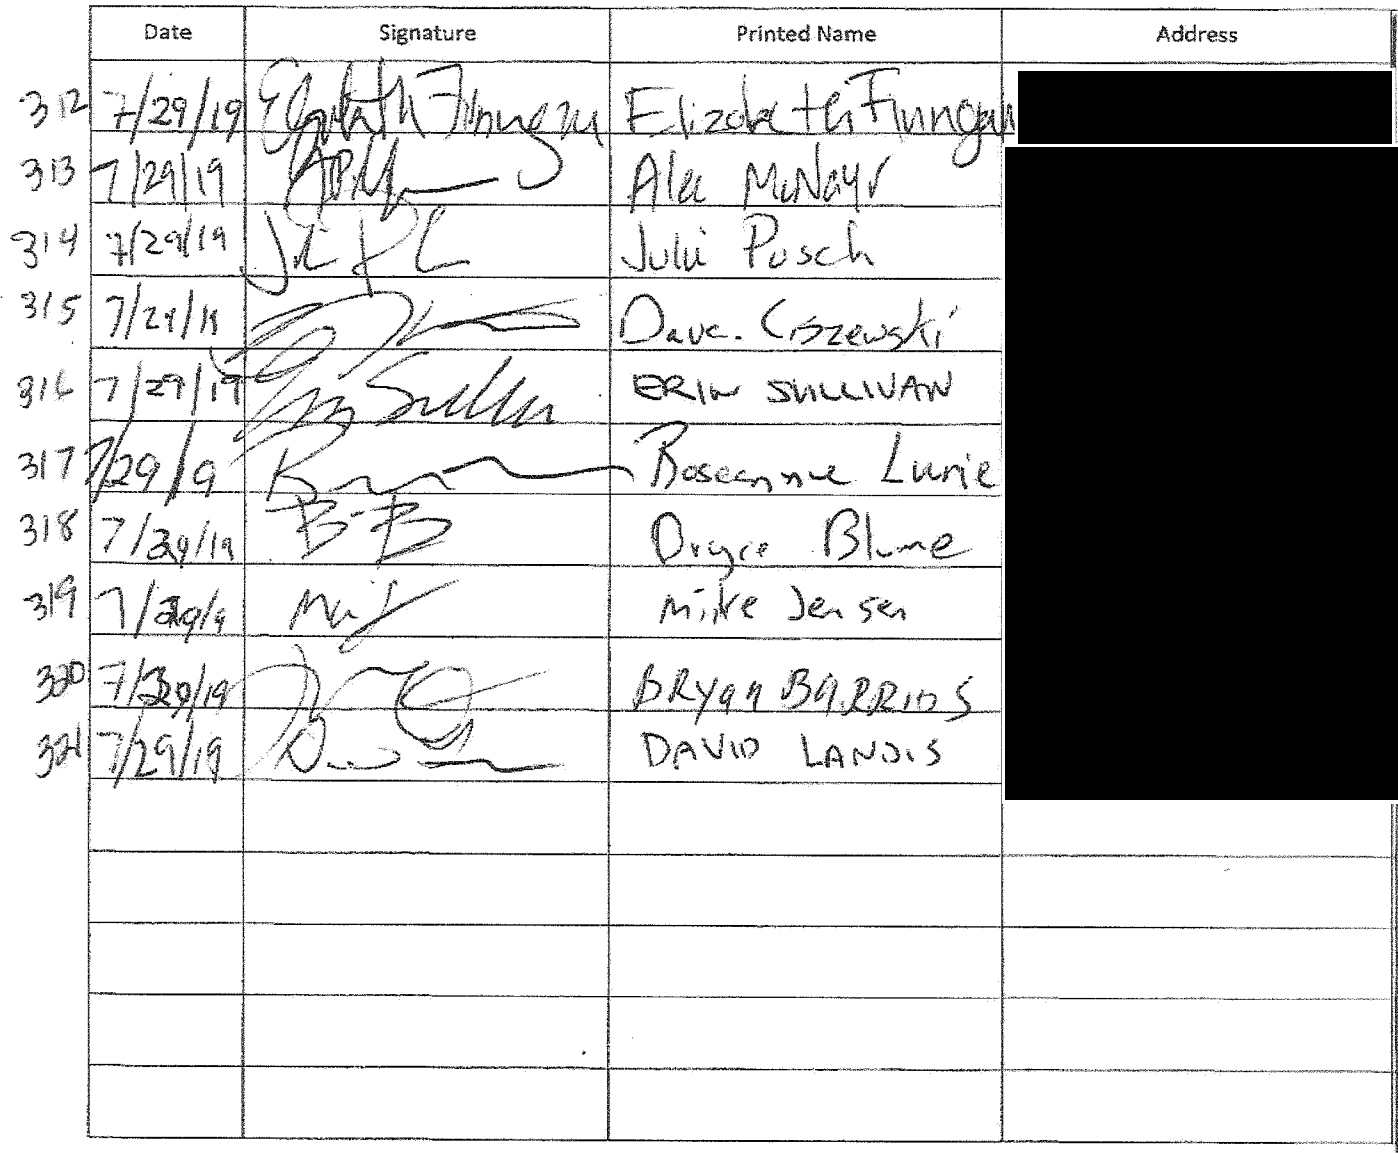 Date Signature Printed Name Address
312 7/29/19 Elizabeth Finnegan Elizabeth Finnegan
313 7/29/19 Alec McNayr
314 7/29/19 Julie Pusch
315 7/29/19 Dave Ciszewski
316 7/29/19 Erin Sullivan ERIN SULLIVAN
317 7/29/19 Roseanne Lurie
318 7/29/19 Blume
319 7/29/19 Mike Jensen
320 7/29/19 BRYan BaRRIOS
321 7/29/19 DAVID LANDIS